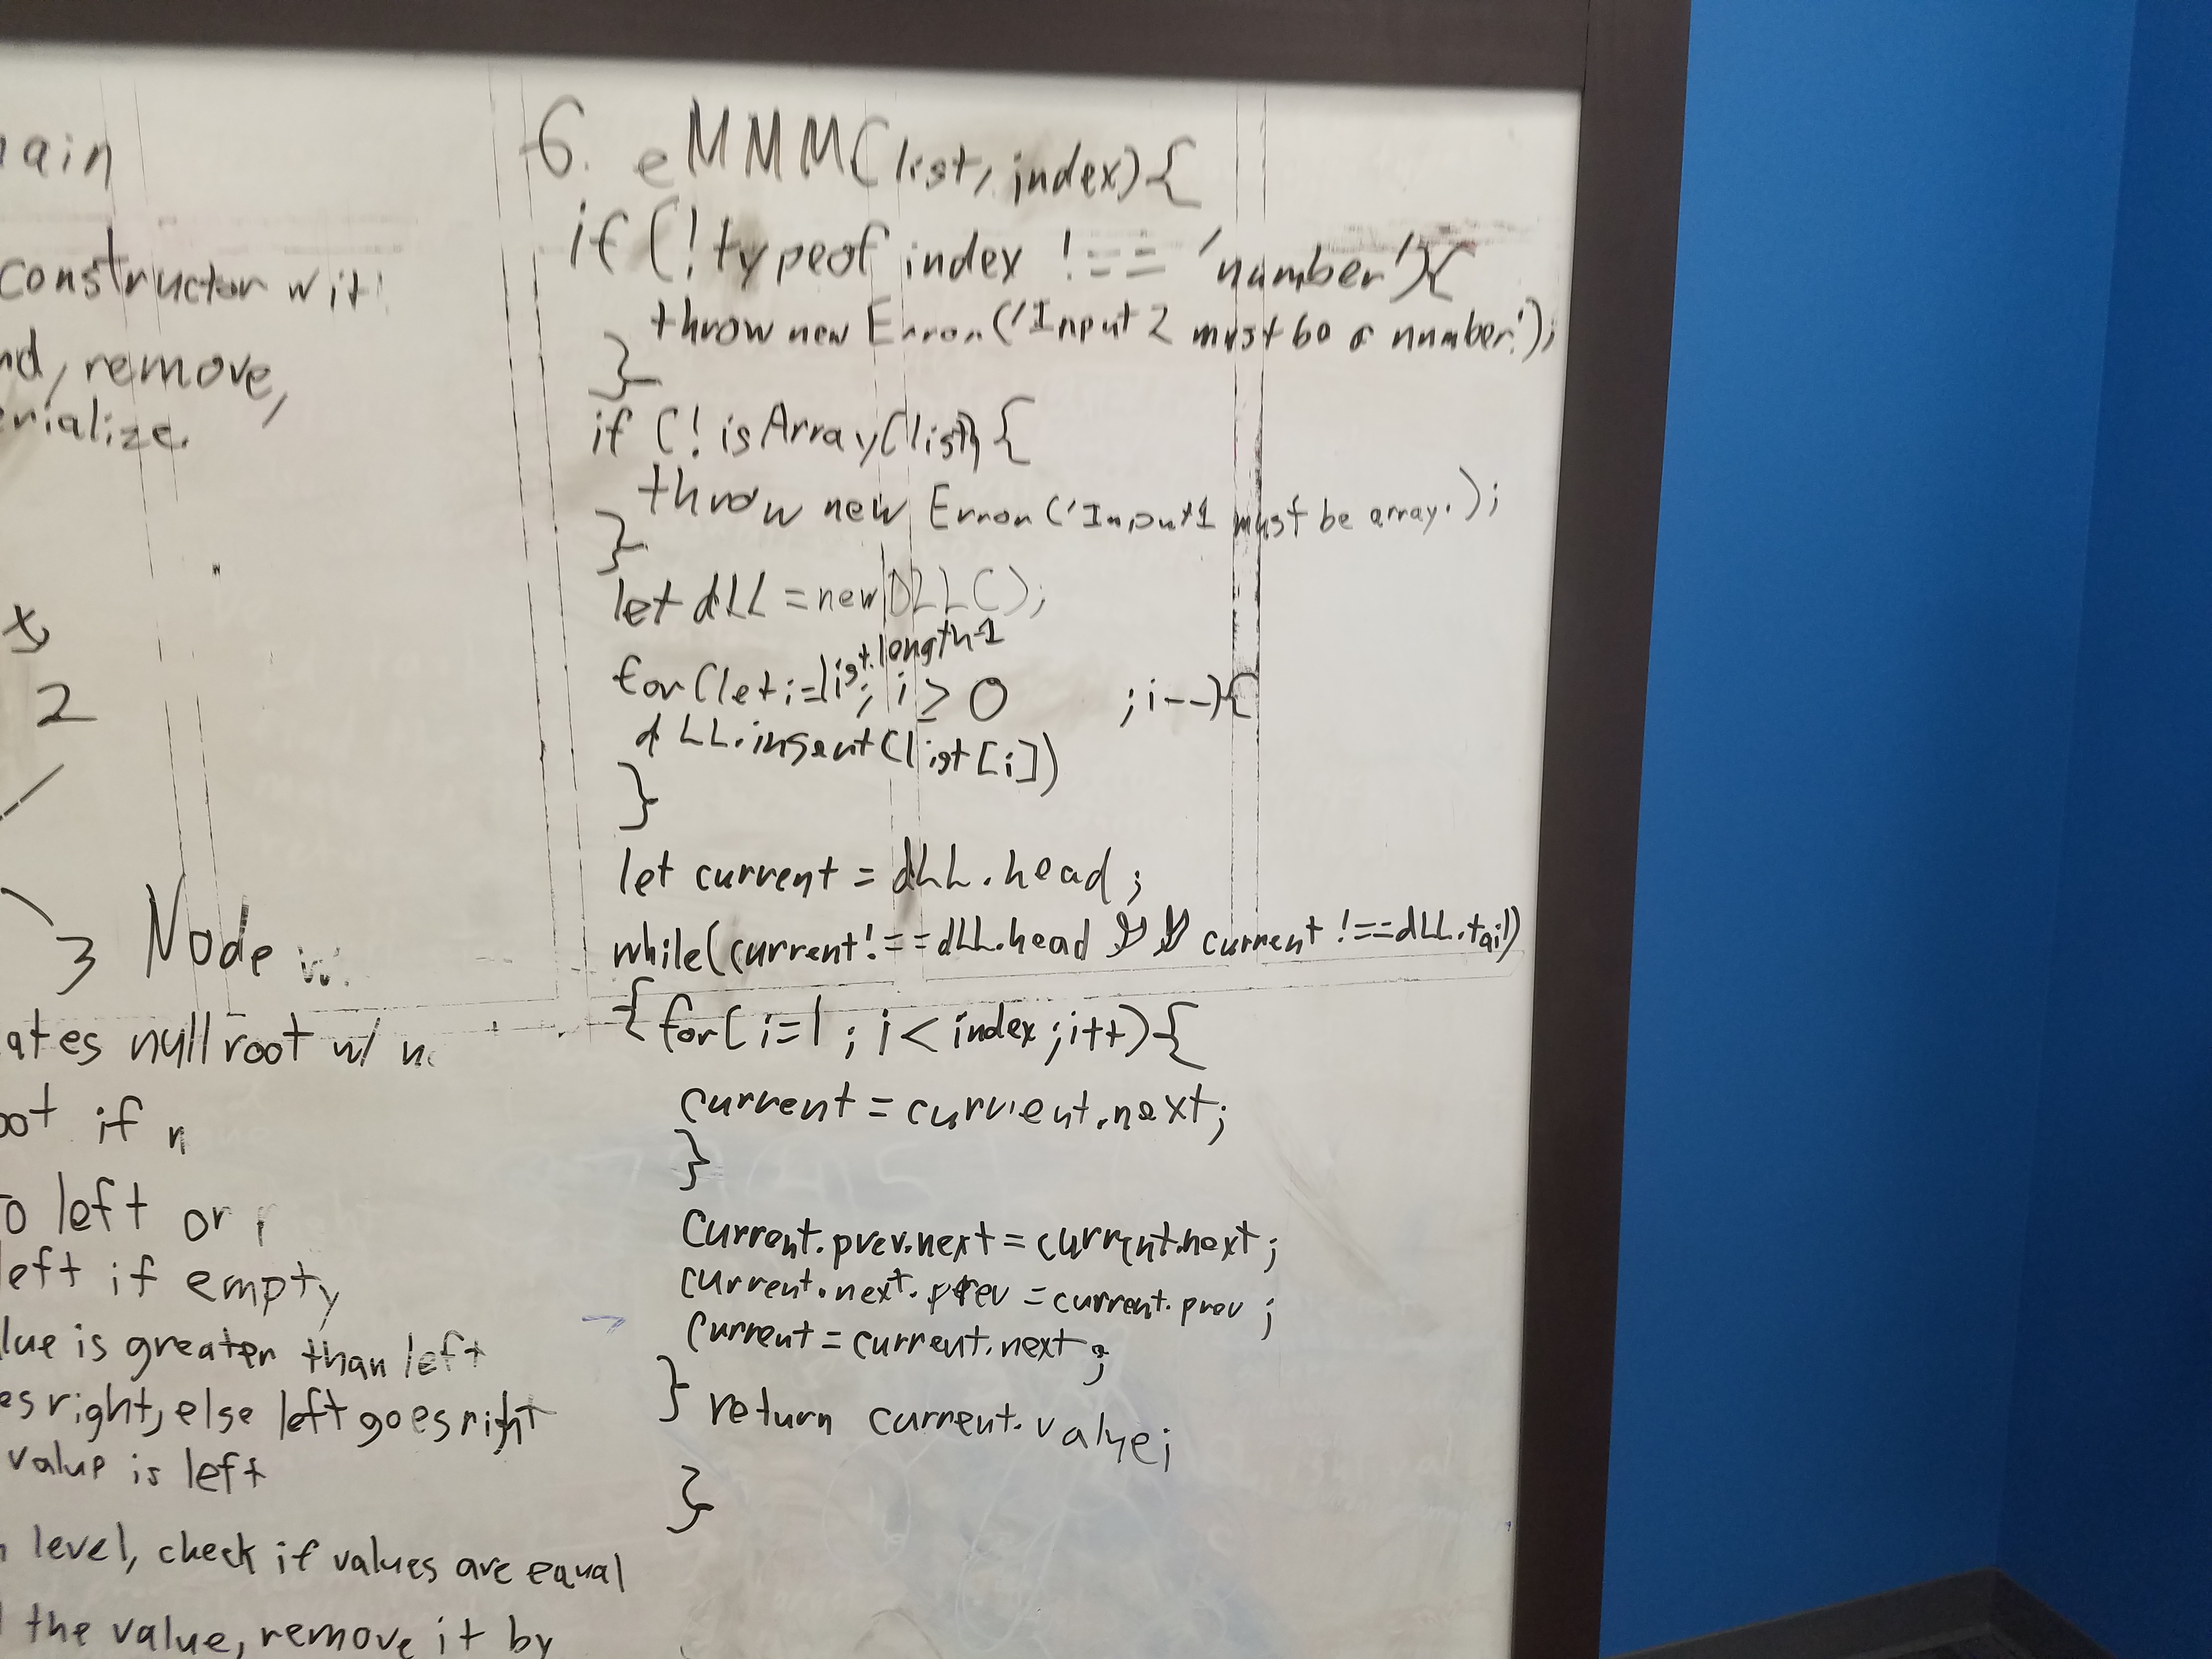 ain
constructor wit
nd, remove,
erialize.
x
2
3 Node w
ates null root w/ n
oot if n
o left or r
left if empty
lue is greater than left
es right, else left goes right
value is left
level, check if values are equal
the value, remove it by
6. eMMM(list, index){
if (!typeof index !== 'number'){
throw new Error('Input 2 must be a number.');
}
if (!isArray(list){
throw new Error('Input 1 must be array.);
}
let dLL = new DLL();
for(let i=list.length-1; i ≥ 0 ; i--){
dLL.insert(list[i])
}
let current = dLL.head;
while(current!==dLL.head && current !==dLL.tail)
{for(i=1; i < index; i++){
current = current.next;
}
current.prev.next = current.next;
current.next.prev = current.prev;
current = current.next;
} return current.value;
}